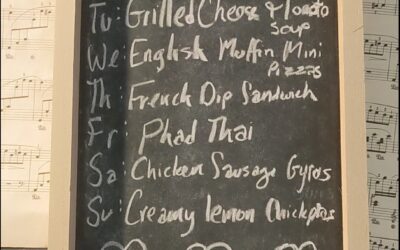 Tu: Grilled Cheese & Tomato
Soup
We: English Muffin Mini
Pizzas
Th: French Dip Sandwich
Fr: Phad Thai
Sa: Chicken Sausage Gyros
Su: Creamy lemon Chickpeas